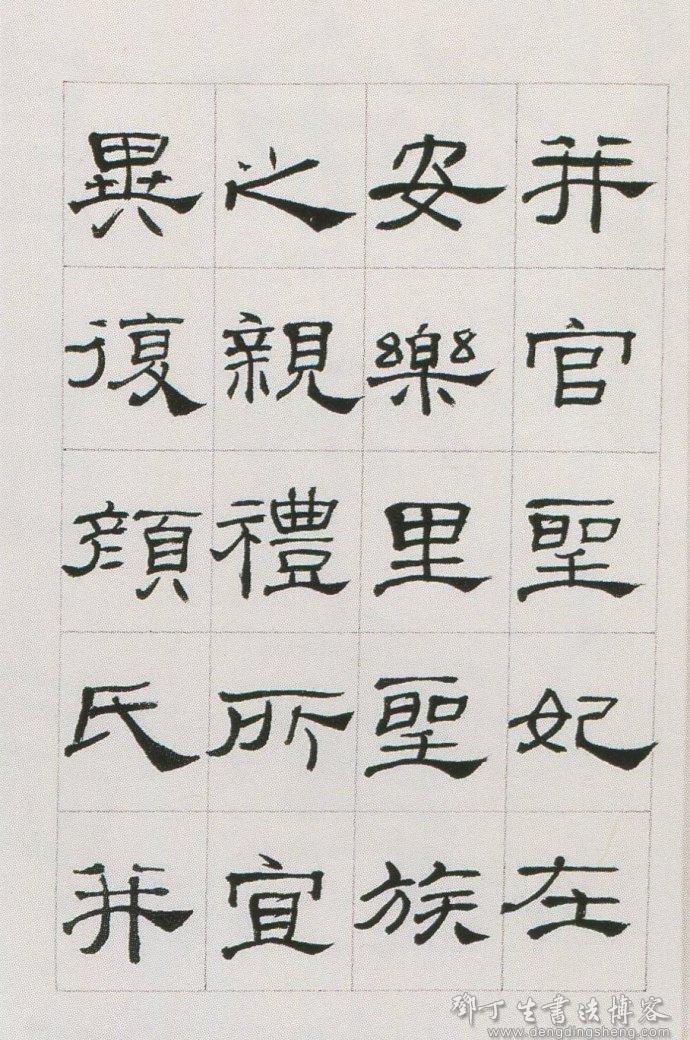 并官聖妃在
安樂里聖族
之親禮所宜
異復顏氏并
鄧丁生書法博客
www.dengdingsheng.com